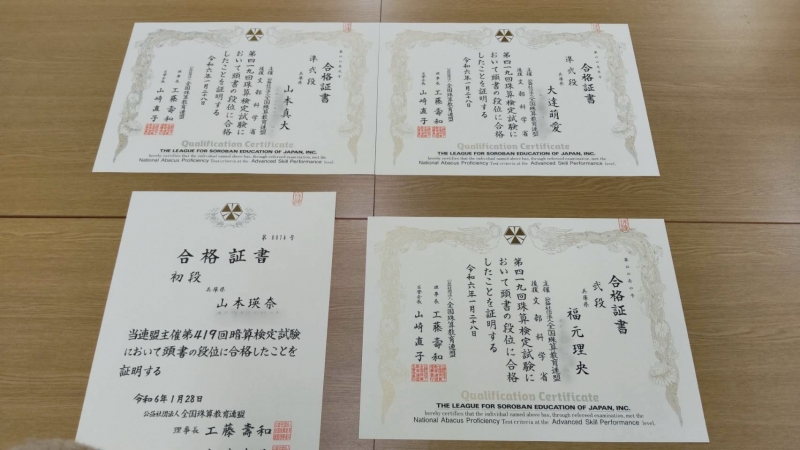 合格証書
準弐段
兵庫県
山本真大
主催 公益社団法人全国珠算教育連盟
後援 文部科学省
第四一九回珠算検定試験に
おいて頭書の段位に合格
したことを証明する
令和六年一月二十八日
公益社団法人全国珠算教育連盟
理事長 工藤壽和
山崎直子
Qualification Certificate
THE LEAGUE FOR SOROBAN EDUCATION OF JAPAN, INC.
hereby certifies that the individual named above has, through refereed examination, met the
National Abacus Proficiency Test criteria at the Advanced Skill Performance level.
合格証書
準弐段
兵庫県
大達萌愛
主催 公益社団法人全国珠算教育連盟
後援 文部科学省
第四一九回珠算検定試験に
おいて頭書の段位に合格
したことを証明する
令和六年一月二十八日
公益社団法人全国珠算教育連盟
理事長 工藤壽和
山崎直子
Qualification Certificate
THE LEAGUE FOR SOROBAN EDUCATION OF JAPAN, INC.
hereby certifies that the individual named above has, through refereed examination, met the
National Abacus Proficiency Test criteria at the Advanced Skill Performance level.
合格証書
初段
兵庫県
山本瑛奈
当連盟主催第419回暗算検定試験
において頭書の段位に合格したことを
証明する
令和6年1月28日
公益社団法人全国珠算教育連盟
理事長 工藤壽和
合格証書
弐段
兵庫県
福元理央
主催 公益社団法人全国珠算教育連盟
後援 文部科学省
第四一九回珠算検定試験に
おいて頭書の段位に合格
したことを証明する
令和六年一月二十八日
公益社団法人全国珠算教育連盟
理事長 工藤壽和
山崎直子
Qualification Certificate
THE LEAGUE FOR SOROBAN EDUCATION OF JAPAN, INC.
hereby certifies that the individual named above has, through refereed examination, met the
National Abacus Proficiency Test criteria at the Advanced Skill Performance level.